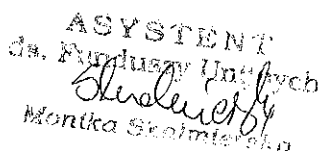 ASYSTENT
ds. Funduszy Unijnych
Monika Skolmierska